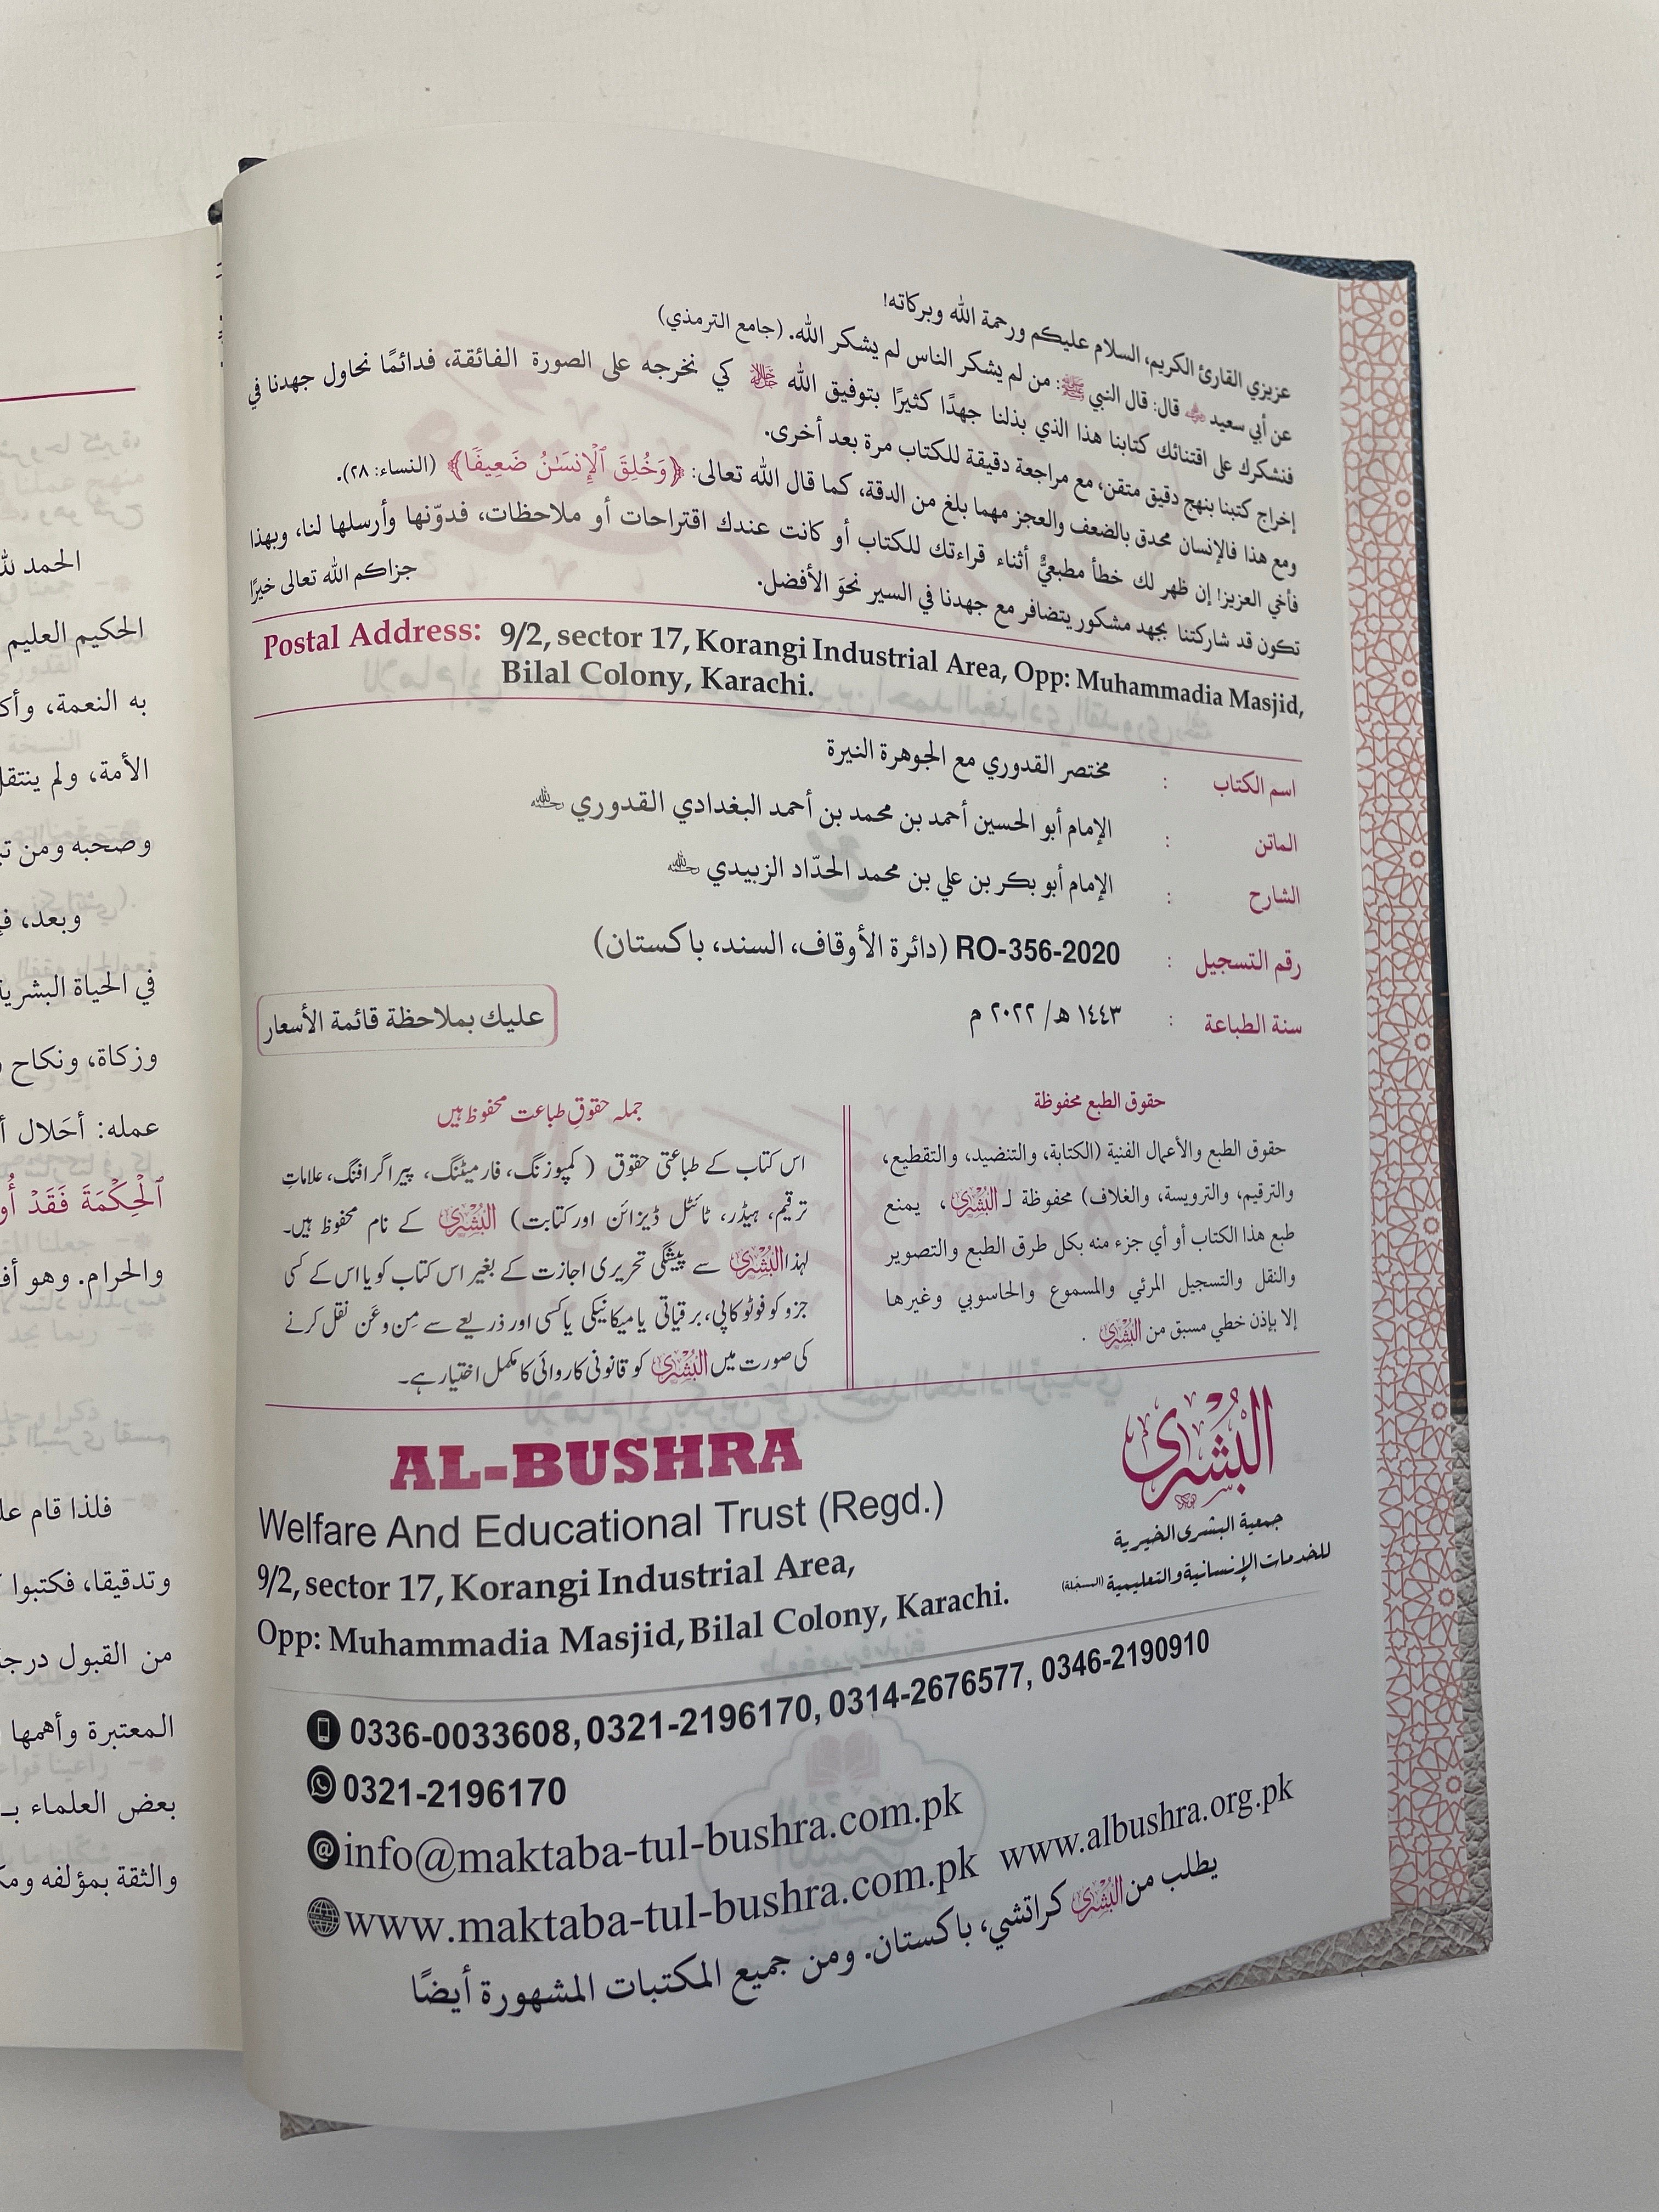 عزيزي القارئ الكريم، السلام عليكم ورحمة الله وبركاته!
عن أبي سعيد ﷺ قال: قال النبي ﷺ: من لم يشكر الناس لم يشكر الله. (جامع الترمذي)
فنشكرك على اقتنائك كتابنا هذا الذي بذلنا جهدًا كثيرًا بتوفيق الله ﷻ كي نخرجه على الصورة الفائقة، فدائمًا نحاول جهدنا في
إخراج كتبنا بنهج دقيق متقن، مع مراجعة دقيقة للكتاب مرة بعد أخرى.
ومع هذا فالإنسان محدق بالضعف والعجز مهما بلغ من الدقة، كما قال الله تعالى: ﴿وَخُلِقَ ٱلْإِنسَـٰنُ ضَعِيفًا﴾ (النساء: ٢٨).
فأخي العزيز! إن ظهر لك خطأ مطبعيٌّ أثناء قراءتك للكتاب أو كانت عندك اقتراحات أو ملاحظات، فدوّنها وأرسلها لنا، وبهذا
تكون قد شاركتنا بجهد مشكور يتضافر مع جهدنا في السير نحوَ الأفضل. جزاكم الله تعالى خيرًا
Postal Address: 9/2, sector 17, Korangi Industrial Area, Opp: Muhammadia Masjid,
Bilal Colony, Karachi.
اسم الكتاب : مختصر القدوري مع الجوهرة النيرة
الماتن : الإمام أبو الحسين أحمد بن محمد بن أحمد البغدادي القدوري رحمه الله
الشارح : الإمام أبو بكر بن علي بن محمد الحدّاد الزبيدي رحمه الله
رقم التسجيل : RO-356-2020 (دائرة الأوقاف، السند، باكستان)
سنة الطباعة : ١٤٤٣ هـ/ ٢٠٢٢ م
عليك بملاحظة قائمة الأسعار
حقوق الطبع محفوظة
حقوق الطبع والأعمال الفنية (الكتابة، والتنضيد، والتقطيع،
والترقيم، والترويسة، والغلاف) محفوظة لـ البُشرى، يمنع
طبع هذا الكتاب أو أي جزء منه بكل طرق الطبع والتصوير
والنقل والتسجيل المرئي والمسموع والحاسوبي وغيرها
إلا بإذن خطي مسبق من البُشرى.
جملہ حقوقِ طباعت محفوظ ہیں
اس کتاب کے طباعتی حقوق (کمپوزنگ، فارمیٹنگ، پیراگرافنگ، علاماتِ
ترقیم، ہیڈر، ٹائٹل ڈیزائن اور کتابت) البُشریٰ کے نام محفوظ ہیں۔
لہٰذا البُشریٰ سے پیشگی تحریری اجازت کے بغیر اس کتاب کو یا اس کے کسی
جزو کو فوٹو کاپی، برقیاتی یا میکانیکی یا کسی اور ذریعے سے مِن و عَن نقل کرنے
کی صورت میں البُشریٰ کو قانونی کاروائی کا مکمل اختیار ہے۔
AL-BUSHRA
Welfare And Educational Trust (Regd.)
9/2, sector 17, Korangi Industrial Area,
Opp: Muhammadia Masjid, Bilal Colony, Karachi.
البُشرى
جمعية البشرى الخيرية
للخدمات الإنسانية والتعليمية (المسجّلة)
0336-0033608, 0321-2196170, 0314-2676577, 0346-2190910
0321-2196170
info@maktaba-tul-bushra.com.pk
www.maktaba-tul-bushra.com.pk www.albushra.org.pk
يطلب من البُشرى كراتشي، باكستان. ومن جميع المكتبات المشهورة أيضًا
الحمد لله
الحكيم العليم
به النعمة، وأك
الأمة، ولم ينتقل
وصحبه ومن تب
وبعد، ف
في الحياة البشرية
وزكاة، ونكاح
عمله: أحَلال أ
ٱلْحِكْمَةَ فَقَدْ أُو
والحرام. وهو أف
فلذا قام عل
وتدقيقا، فكتبوا
من القبول درجة
المعتبرة وأهمها
بعض العلماء بـ
والثقة بمؤلفه ومك